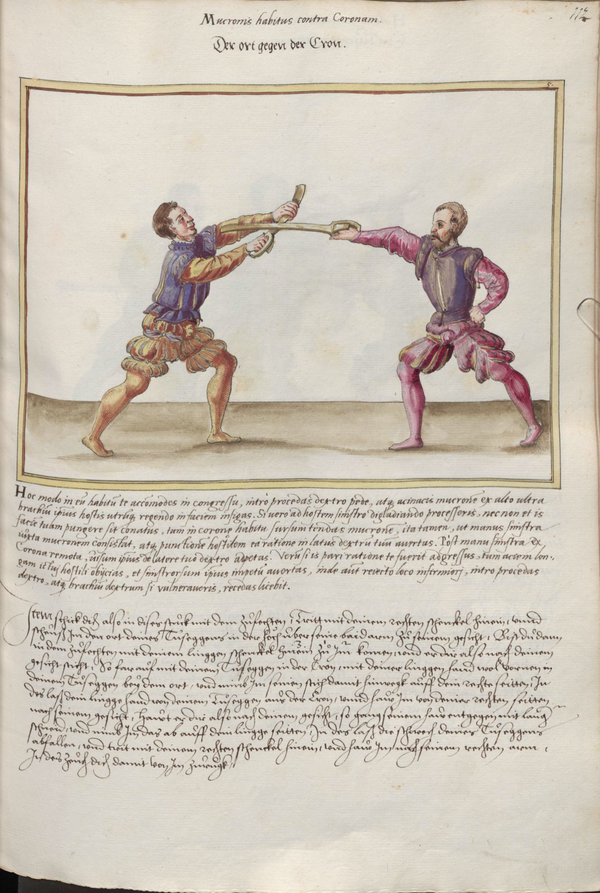 Mucronis habitus contra Coronam.
Der ort gegen der Cron.
Hoc modo in eũ habitũ te accõmodes in congressu, intro procedas dextro pede, atq. acinacis mucronẽ ex alto ultra
brachiũ ipsius hostis utrũq. regendo in faciem infigas. Si uero ad hostem sinistro digladiando processeris, nec non et is
faciẽ tuam pungere sit conatus, tum in coronæ habitu sursum tendas mucronẽ, ita tamen, ut manus sinistra
iuxta mucronem consistat, atq. punctionẽ hostilem ea ratione in latus dextrũ tuũ auertas. Post manu sinistra ex
Corona remota, uisum ipsius de latere tuo dextro appetas. Verũ si is pari ratione te fuerit adgressus, tum aciem lon-
gam illi hosti obijcias, et sinistrorsum ipsius impetũ auertas, inde aut reiecto loco inferiori, intro procedas
dextro, atq. brachiũ dextrum si vulneraueris, recedas licebit.
Item schick dich also in diser stuck mit dem zufechten, Tritt mit deinem rechten schenckel hinein, unnd
scheuß Im den ort deines Tuseggens in der höch uber seine baid arm zu seinem gesicht, Bist du dann
in dem zufechten mit deinem linggen schenckel hinein zu Im komen, unnd er dir also nach deinem
gesicht sticht, So far auf mit deinem Tuseggen in der Cron, mit deiner linggen hand wol vornen in
deinem Tuseggen bey dem ort, unnd nimb Im seinen stich damit hinwegk auff dein rechte seitten, In
des lass dein lingge hand von deinem Tuseggen auss der Cron, unnd haw Im von deiner rechten seitten
nach seinem gesicht, Hawt er dir also nach deinem gesicht, so gang seinem haw entgegen mit langer
schneid, unnd nimb Im das ab auff dein lingge seitten, In des lass die schneid deines Tuseggens
abfallen, unnd tritt mit deinem rechten schenckel hinein, unnd haw Im nach seinem rechten arm,
In des zeuch dich damit von Im zuruckh.